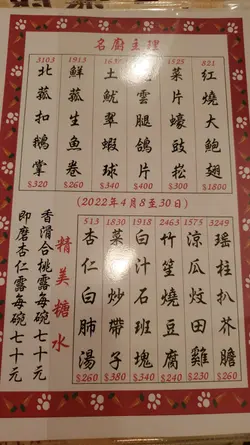 名廚主理
821
紅燒大鮑翅
$1800
1525
菜片蠔豉崧
$300
雲腿鴿片
$400
土魷翠蝦球
$340
1913
鮮菰生魚卷
$260
3103
北菰扣鵝掌
$320
(2022年4月8至30日)
3249
瑤柱扒芥膽
$260
1575
涼瓜炆田雞
$230
2463
竹笙燒豆腐
$240
1918
白汁石班塊
$340
1830
菜炒帶子
$380
513
杏仁白肺湯
$260
精美糖水
香滑合桃露每碗七十元
即磨杏仁露每碗七十元